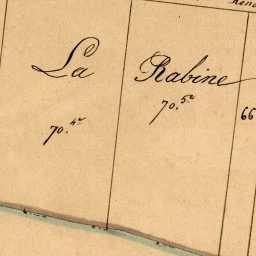 La Rabine
70.4e
70.5e
66